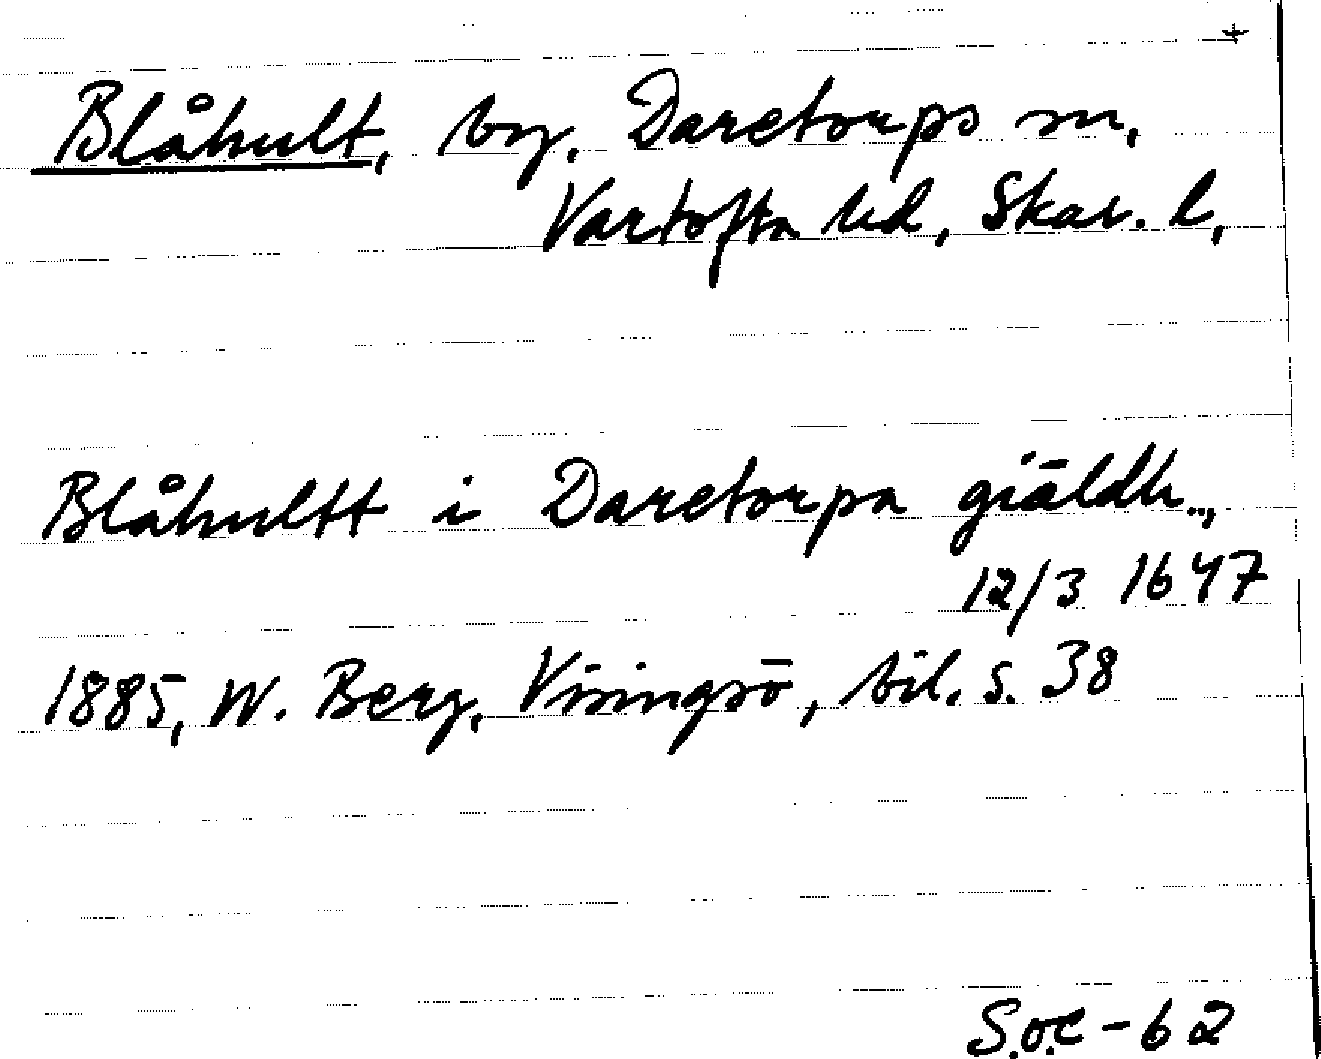 +
Blåhult, by, Daretorps sn,
Vartofta hd, Skar. l,
Blåhultt i Daretorpa giäldh..,
12/3 1647
1885, W. Berg, Visingsö, bil. s. 38
S.o.C-62